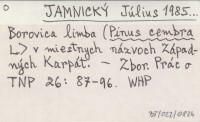 JAMNICKÝ Július 1985...
Borovica limba (Pinus cembra
L> v miestnych názvoch Západ-
ných Karpát. — Zbor. Prác o
TNP 26: 87-96. WHP